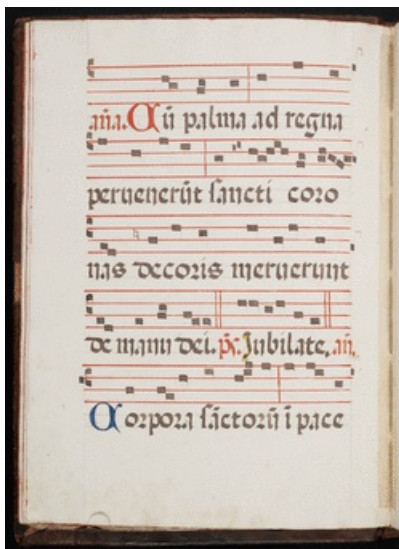 aña. Cū palma ad regna
peruenerūt sancti coro
nas decoris meruerunt
de manu dei. ps. Jubilate. añ.
Corpora sāctorū ī pace